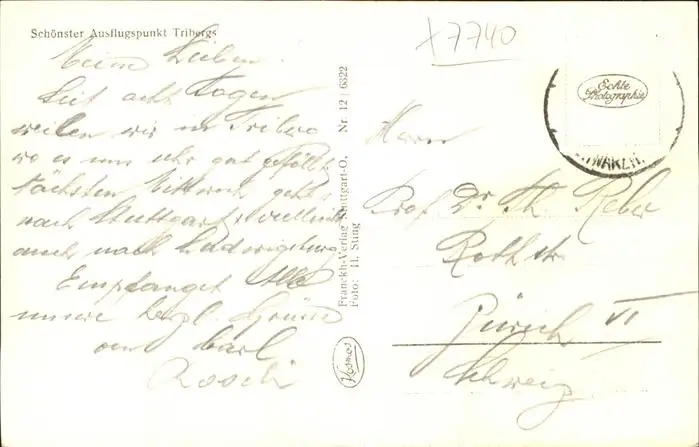 Schönster Ausflugspunkt Tribergs
Meine Lieben.
Seit acht Tagen
weilen wir in Triberg
wo es uns sehr gut gefällt.
Nächsten Mittwoch geht's
nach Stuttgart & vielleicht
auch nach Ludwigsburg
Empfanget Alle
unsere herzl. Grüsse
und Carl
Rosch
Franckh-Verlag Stuttgart-O. Nr. 12 6322
Foto: H. Sting
Kosmos
x7740
Echte
Photographie
Herrn
Prof Dr Th. Reber
Rothstr.
Zürich VI
Schweiz